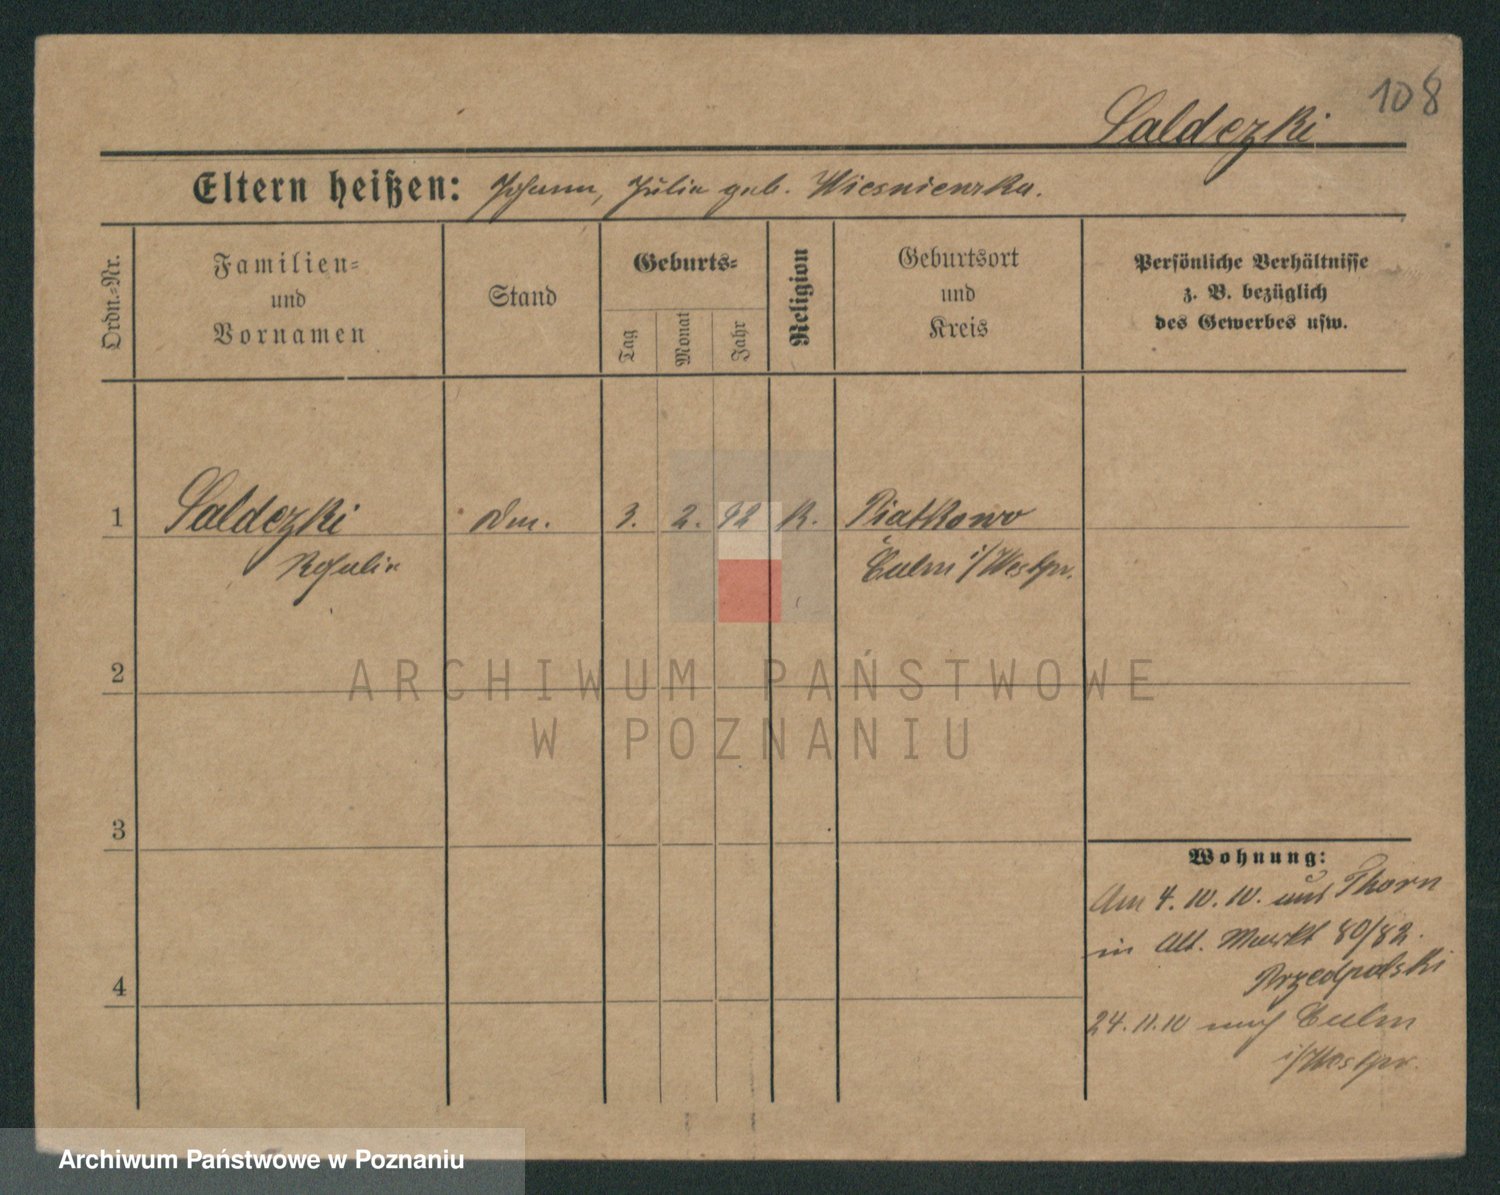 108
Saldezki
Eltern heißen: Johann, Julia geb. Wiesniewska.
Ordn.-Nr.
Familien- und Vornamen
Stand
Geburts-
Tag
Monat
Jahr
Religion
Geburtsort und Kreis
Persönliche Verhältnisse
z. B. bezüglich
des Gewerbes usw.
1 Saldezki 3. 2. 92 K. Piatkowo
Rosalie Culm i/Westpr.
2
3
4
Wohnung:
Am 4. 10. 10. aus Thorn
in Alt. Markt 80/82.
Przedpolski
24.11.10 nach Culm
i/Westpr.
ARCHIWUM PAŃSTWOWE
W POZNANIU
Archiwum Państwowe w Poznaniu